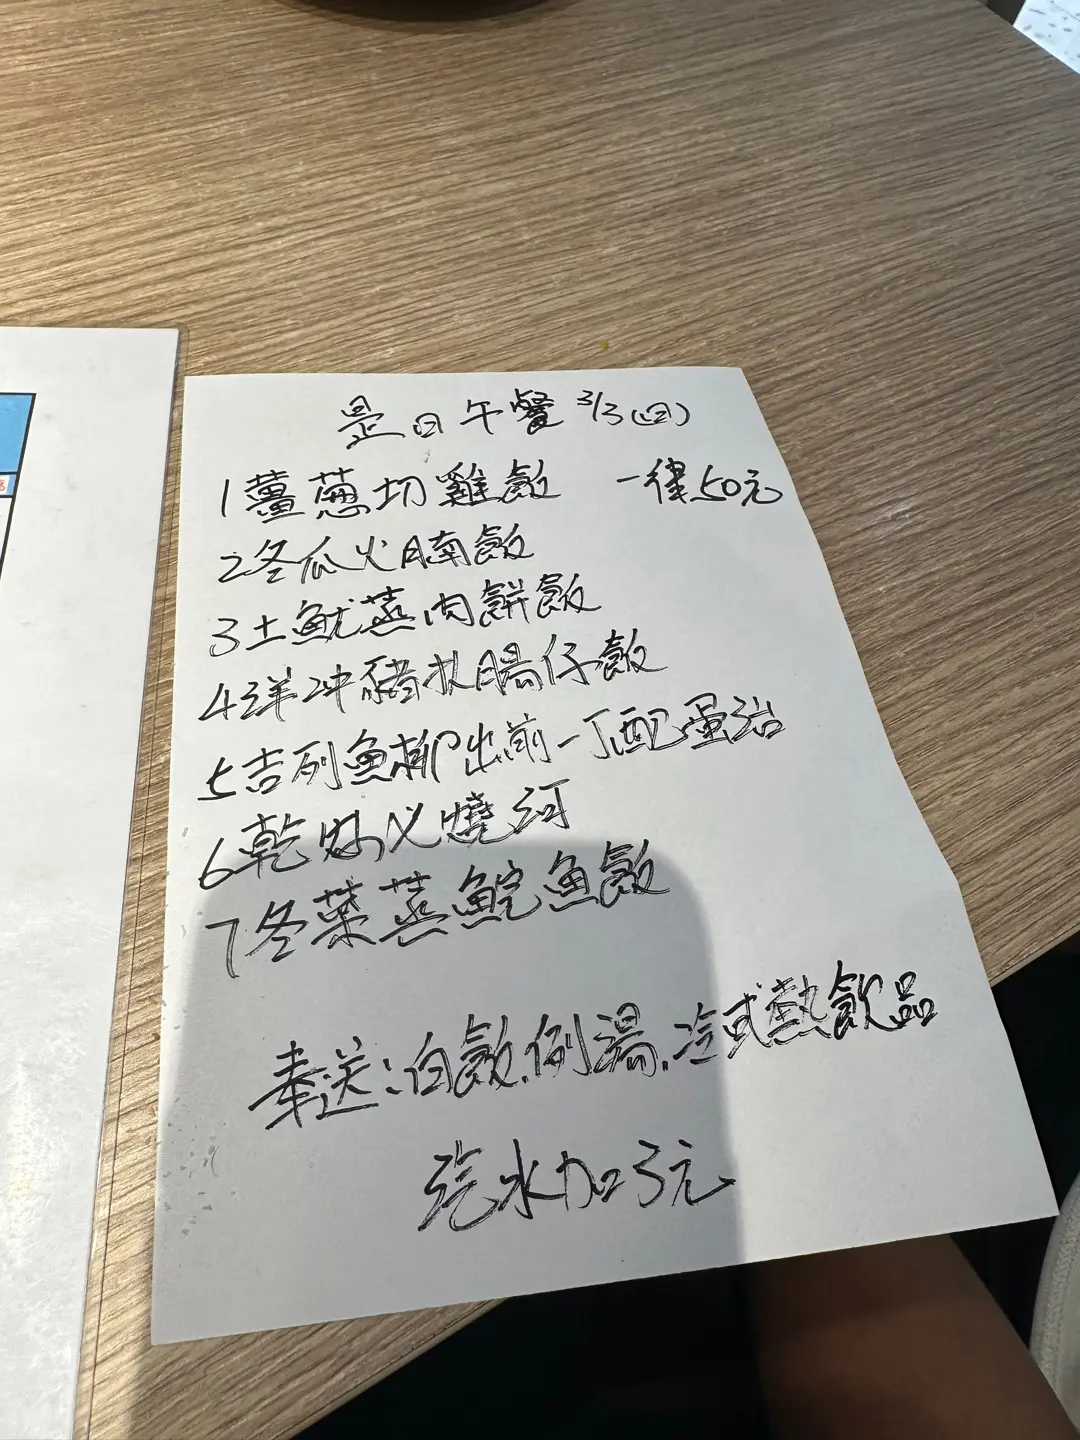 是日午餐 3/3(四)
1薑蔥切雞飯 一律50元
2冬瓜火腩飯
3土魷蒸肉餅飯
4洋沖豬扒腸仔飯
5吉列魚柳出前一丁配蛋治
6乾炒义燒河
7冬菜蒸鯇魚飯
奉送:白飯.例湯.冷或熱飲品
汽水加3元